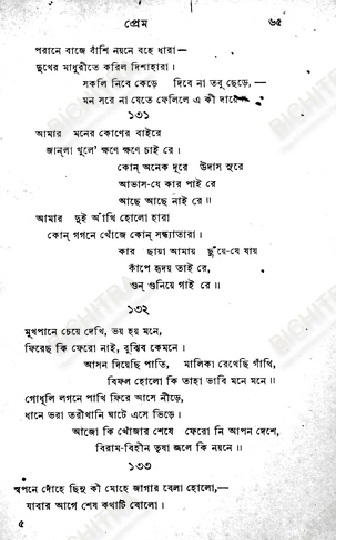 প্রেম ৬৫
পরানে বাজে বাঁশি নয়নে বহে ধারা—
দুখের মাধুরীতে করিল দিশাহারা।
সকলি নিবে কেড়ে দিবে না তবু ছেড়ে,—
মন সরে না যেতে ফেলিলে এ কী দায়ে
১৩১
আমার মনের কোণের বাইরে
জানলা খুলে' ক্ষণে ক্ষণে চাই রে।
কোন্ অনেক দূরে উদাস সুরে
আভাস-যে কার পাই রে
আছে আছে নাই রে॥
আমার দুই আঁখি হোলো হারা
কোন্ গগনে খোঁজে কোন্ সন্ধ্যাতারা।
কার ছায়া আমায় ছুঁয়ে-যে যায়
কাঁপে হৃদয় তাই রে,
গুন্ গুনিয়ে গাই রে॥
১৩২
মুখপানে চেয়ে দেখি, ভয় হয় মনে,
ফিরেছ কি ফেরো নাই, বুঝিব কেমনে।
আসন দিয়েছি পাতি, মালিকা রেখেছি গাঁথি,
বিফল হোলো কি তাহা ভাবি মনে মনে॥
গোধূলি লগনে পাখি ফিরে আসে নীড়ে,
ধানে ভরা তরীখানি ঘাটে এসে ভিড়ে।
আজো কি খোঁজার শেষে ফেরো নি আপন দেশে,
বিরাম-বিহীন তৃষা জলে কি নয়নে॥
১৩৩
স্বপনে দোঁহে ছিনু কী মোহে জাগার বেলা হোলো,—
যাবার আগে শেষ কথাটি বোলো।
৫
BICHITRA